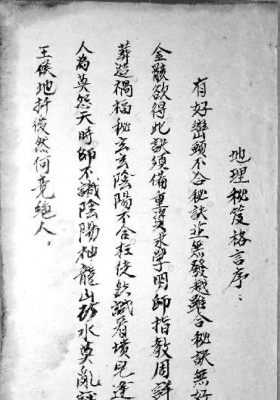 地理秘笈格言序：
有好巒頭不合秘訣並無發越雖合秘訣無好
金骸欲得此訣須備重資求學明師指教周詳
葬造禍福秘玄玄陰陽不合枉徒然試看墳見達
人為莫怨天時師不識陰陽神龍山砂水莫亂
王侯地拆後然何竟絕人。